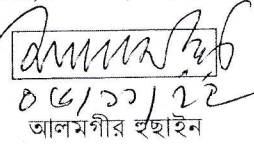 ০৬/১১/২২
আলমগীর হুছাইন